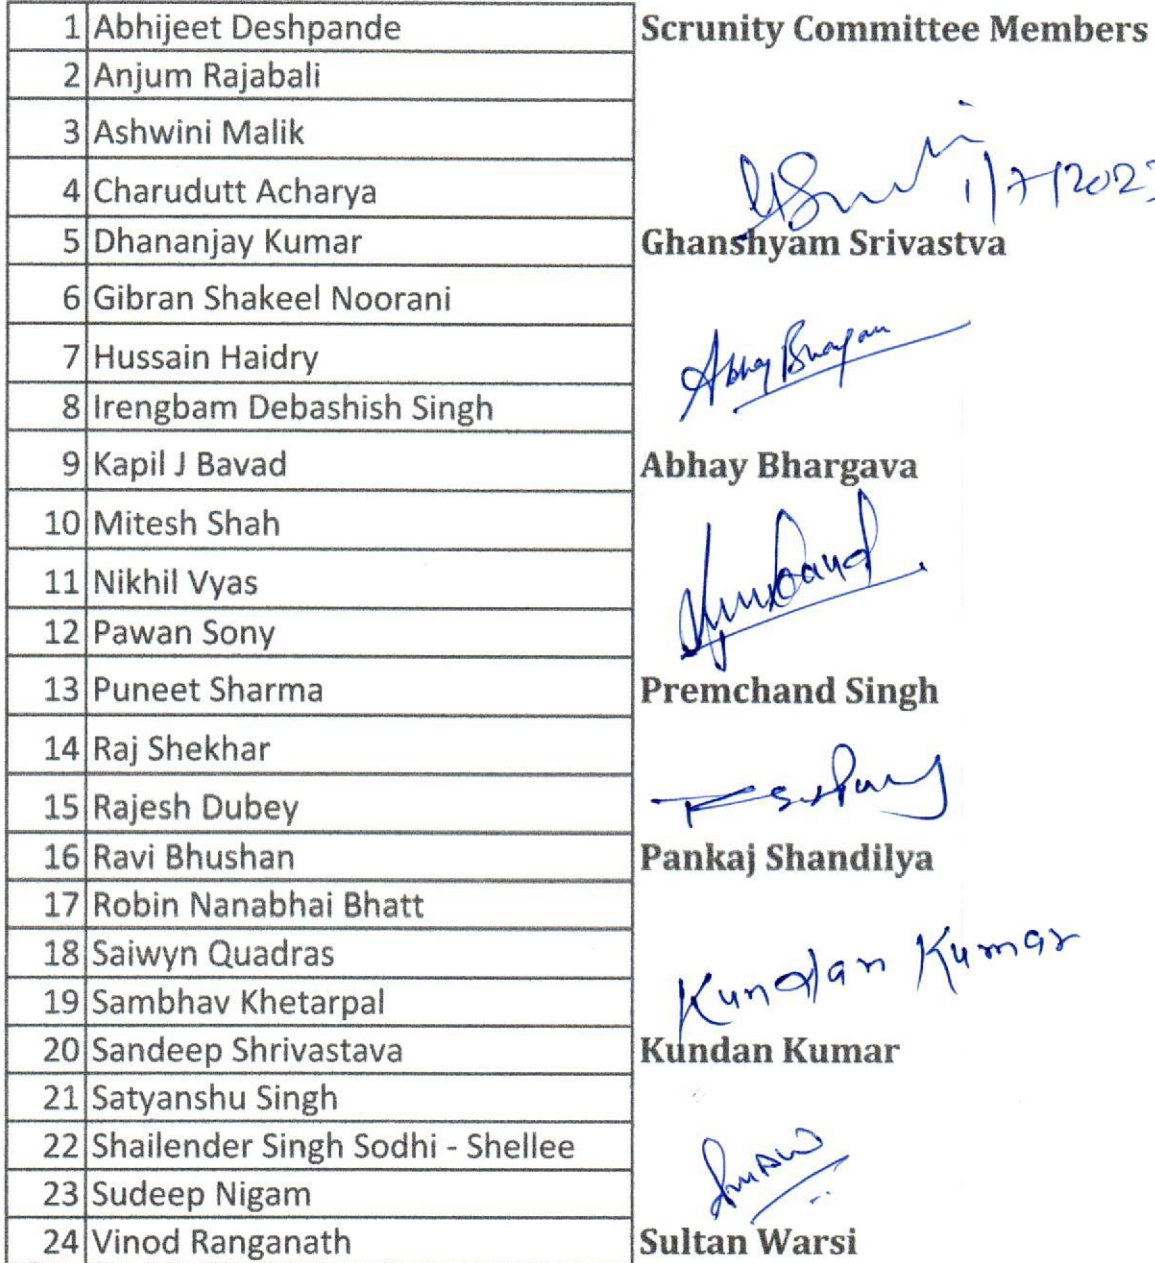 1 Abhijeet Deshpande
2 Anjum Rajabali
3 Ashwini Malik
4 Charudutt Acharya
5 Dhananjay Kumar
6 Gibran Shakeel Noorani
7 Hussain Haidry
8 Irengbam Debashish Singh
9 Kapil J Bavad
10 Mitesh Shah
11 Nikhil Vyas
12 Pawan Sony
13 Puneet Sharma
14 Raj Shekhar
15 Rajesh Dubey
16 Ravi Bhushan
17 Robin Nanabhai Bhatt
18 Saiwyn Quadras
19 Sambhav Khetarpal
20 Sandeep Shrivastava
21 Satyanshu Singh
22 Shailender Singh Sodhi - Shellee
23 Sudeep Nigam
24 Vinod Ranganath
Scrunity Committee Members
1/7/202
Ghanshyam Srivastva
Abhay Bhargava
Premchand Singh
Pankaj Shandilya
Kundan Kumar
Kundan Kumar
Sultan Warsi